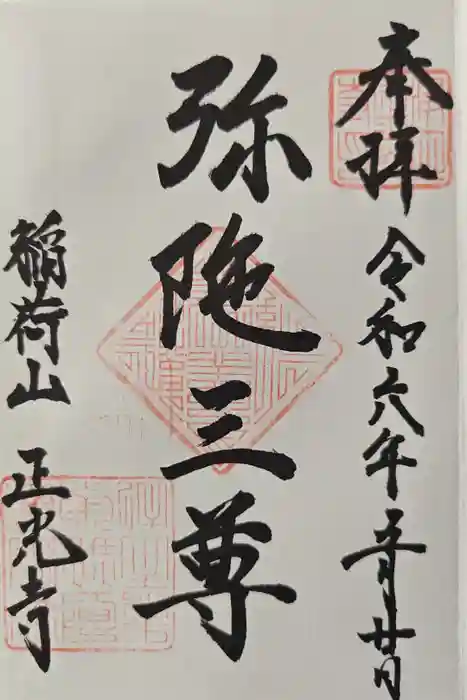 奉拝
令和六年五月廿日
弥陀三尊
稲荷山 正光寺